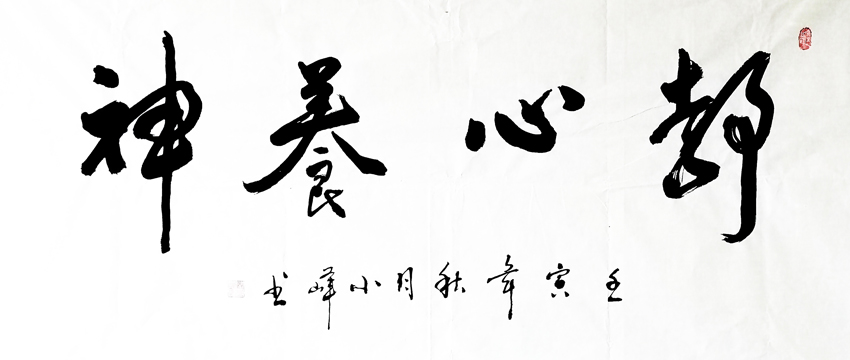 靜心養神
壬寅年秋月小峰书